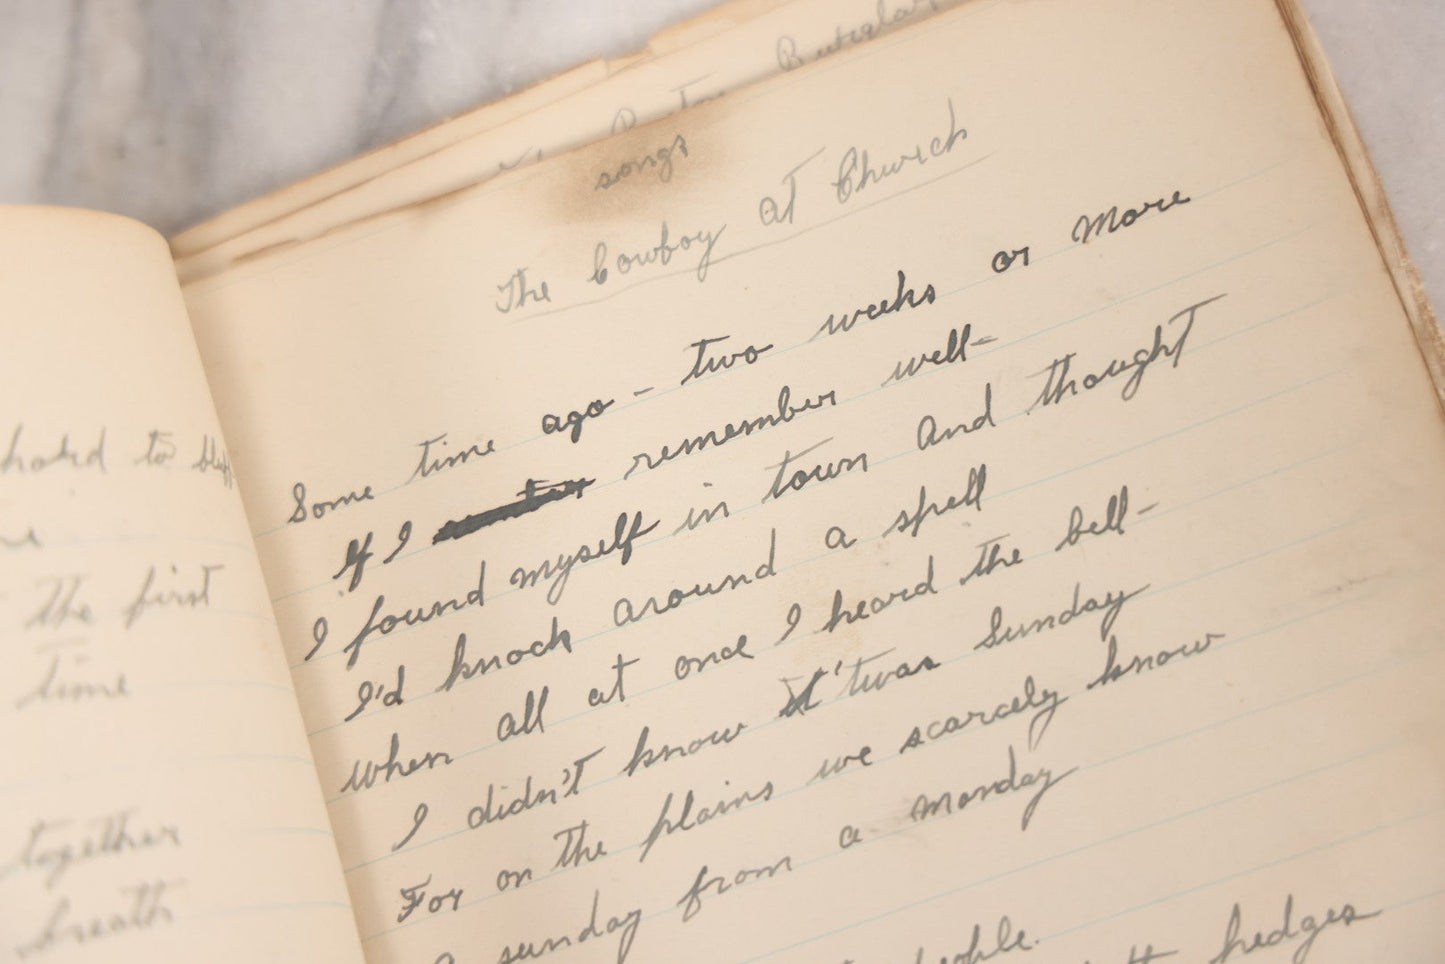 songs
The Cowboy at Church
Some time ago - two weeks or more
If I remember well-
I found myself in town And thought
I'd knock around a spell
When all at once I heard the bell-
I didn't know it 'twas Sunday
For on the plains we scarcely know
A sunday from a monday
people.
hedges
hard to bluff
the first
time
together
breath